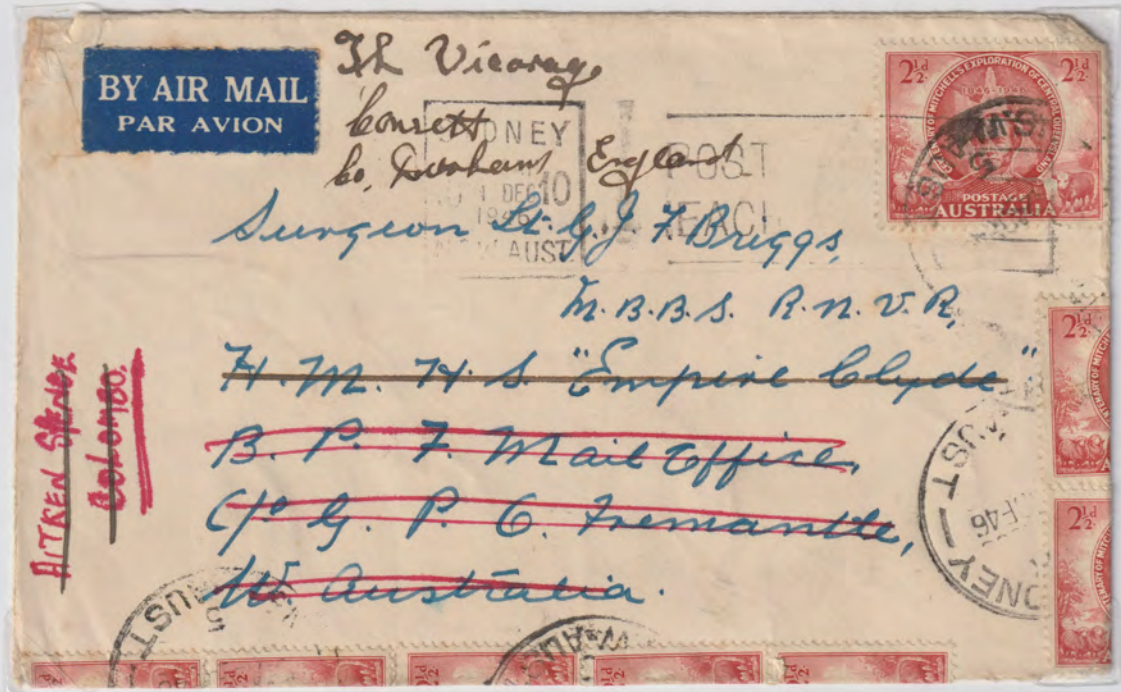 BY AIR MAIL
PAR AVION
Th Vicarage
Consett
Co. Durham England
SYDNEY
1 DEC 10
1946
AUST
POST
EACH
2½d 2½d
CENTENARY OF MITCHELL'S EXPLORATION OF CENTRAL QUEENSLAND
1846-1946
POSTAGE
AUSTRALIA
Surgeon Lt. G. J F Briggs,
M.B.B.S. R.N.V.R,
H. M. H. S. "Empire Clyde"
B. P. F. Mail Office,
C/o G. P. O. Fremantle,
W Australia.
AITKEN SPENCE
COLOMBO.
2½d
2½d
SYDNEY
AUST
46
AUST
5
W-AU
½d
½d
½d
½d
½d